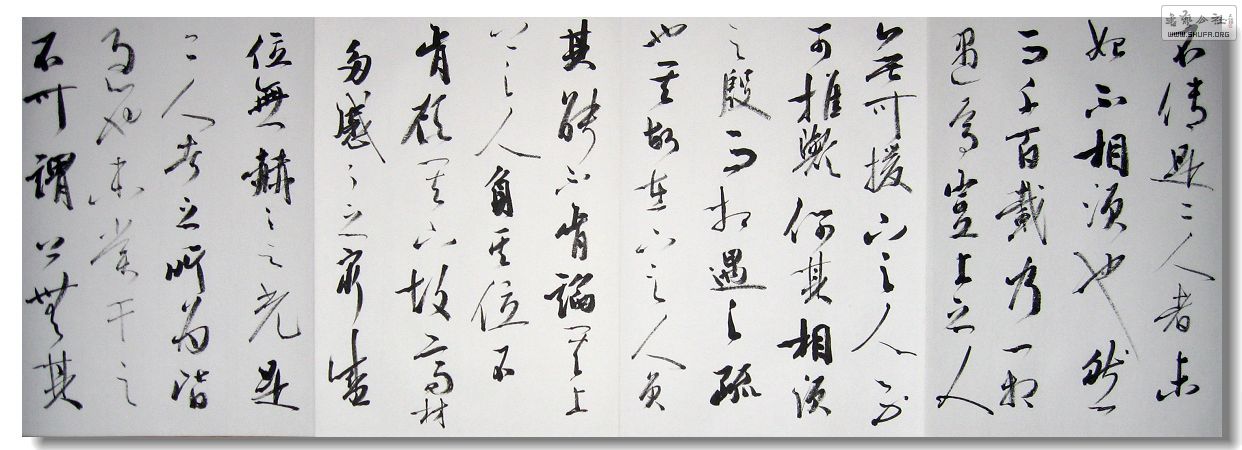 不傳是二人者未
始不相須也然
而千百載乃一相
遇焉豈上之人
無可援下之人無
可推歟何其相須
之殷而相遇之疏
也其故在下之人負
其能不肯諂其上
上之人負其位不
肯顧其下故高材
多戚戚之窮盛
位無赫赫之光是
二人者之所為皆
過也未嘗干之
不可謂上無其
书法公社
WWW.SHUFA.ORG